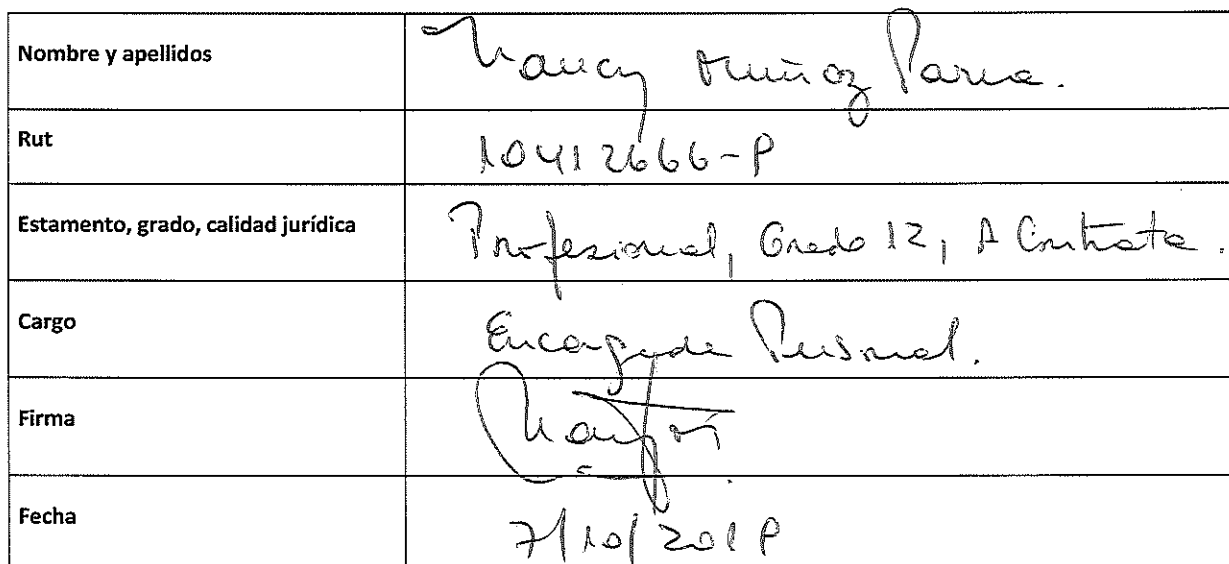 Nombre y apellidos Nancy Muñoz Parra.
Rut 10412666-9
Estamento, grado, calidad jurídica Profesional, Grado 12, A Contrata.
Cargo Encargada Personal.
Firma
Fecha 7/10/2019